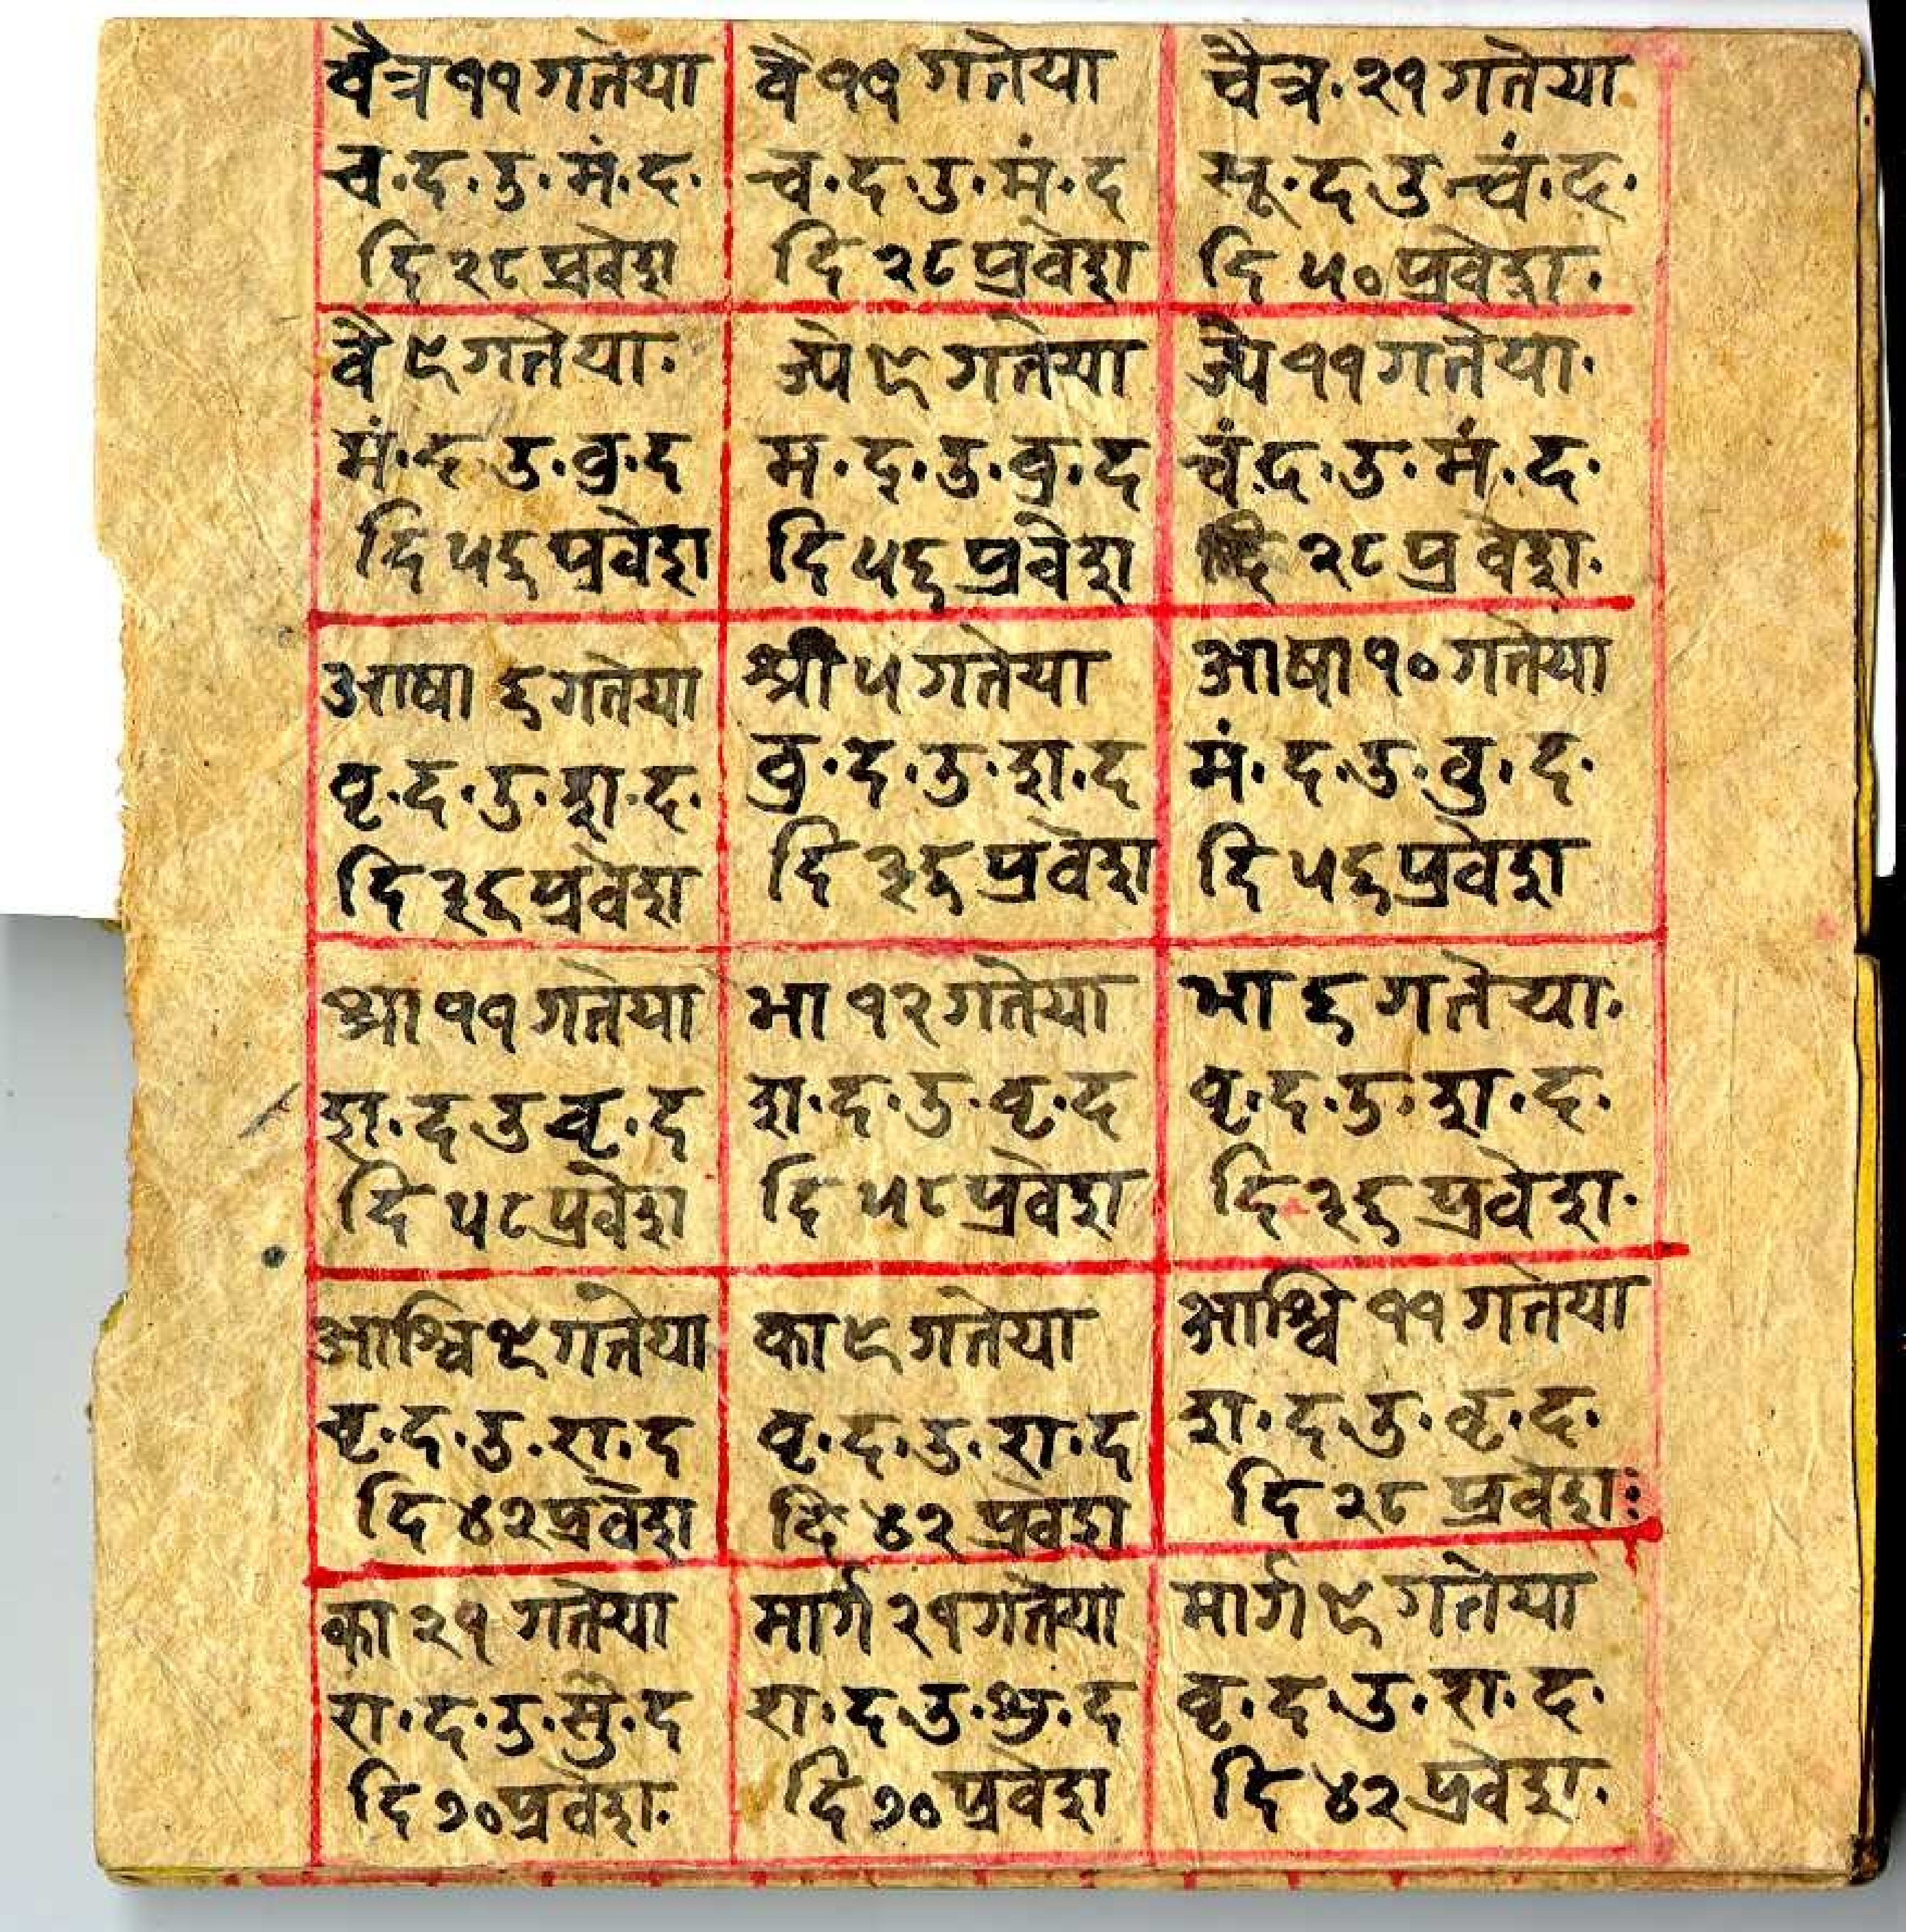 चैत्र ११ गतेया
चं·द·उ·मं·द·
दि २८ प्रवेश
वै ११ गतेया
चं·द·उ·मं·द
दि २८ प्रवेश
चैत्र·२१ गतेया
सू·द उ चं·द·
दि ५० प्रवेश·
वै ९ गतेया·
मं·द उ·बु·द
दि ५६ प्रवेश
ज्ये ९ गतेया
म·द·उ·बु·द
दि ५६ प्रवेश
ज्ये ११ गतेया·
चं·द·उ·मं·द·
दि २८ प्रवेश·
आषा ६ गतेया
वृ·द·उ·श·द·
दि ३६ प्रवेश
श्रा ५ गतेया
बृ·द·उ·श·द
दि ३६ प्रवेश
आषा १० गतेया
मं·द·उ·बु·द·
दि ५६ प्रवेश
श्रा ११ गतेया
श·द उ वृ·द
दि ५८ प्रवेश
भा १२ गतेया
श·द·उ·वृ·द
दि ५८ प्रवेश
भा ६ गतेया·
वृ·द·उ·श·द·
दि ३६ प्रवेश·
आश्वि ९ गतेया
वृ·द·उ·रा·द
दि ४२ प्रवेश
का ९ गतेया
वृ·द·उ·रा·द
दि ४२ प्रवेश
आश्वि ११ गतेया
श·द·उ·वृ·द·
दि २८ प्रवेशः
का २१ गतेया
रा·द·उ·सु·द
दि ७० प्रवेश·
मार्ग २१ गतेया
रा·द उ·शु·द
दि ७० प्रवेश
मार्ग ९ गतेया
वृ·द·उ·रा·द·
दि ४२ प्रवेश·